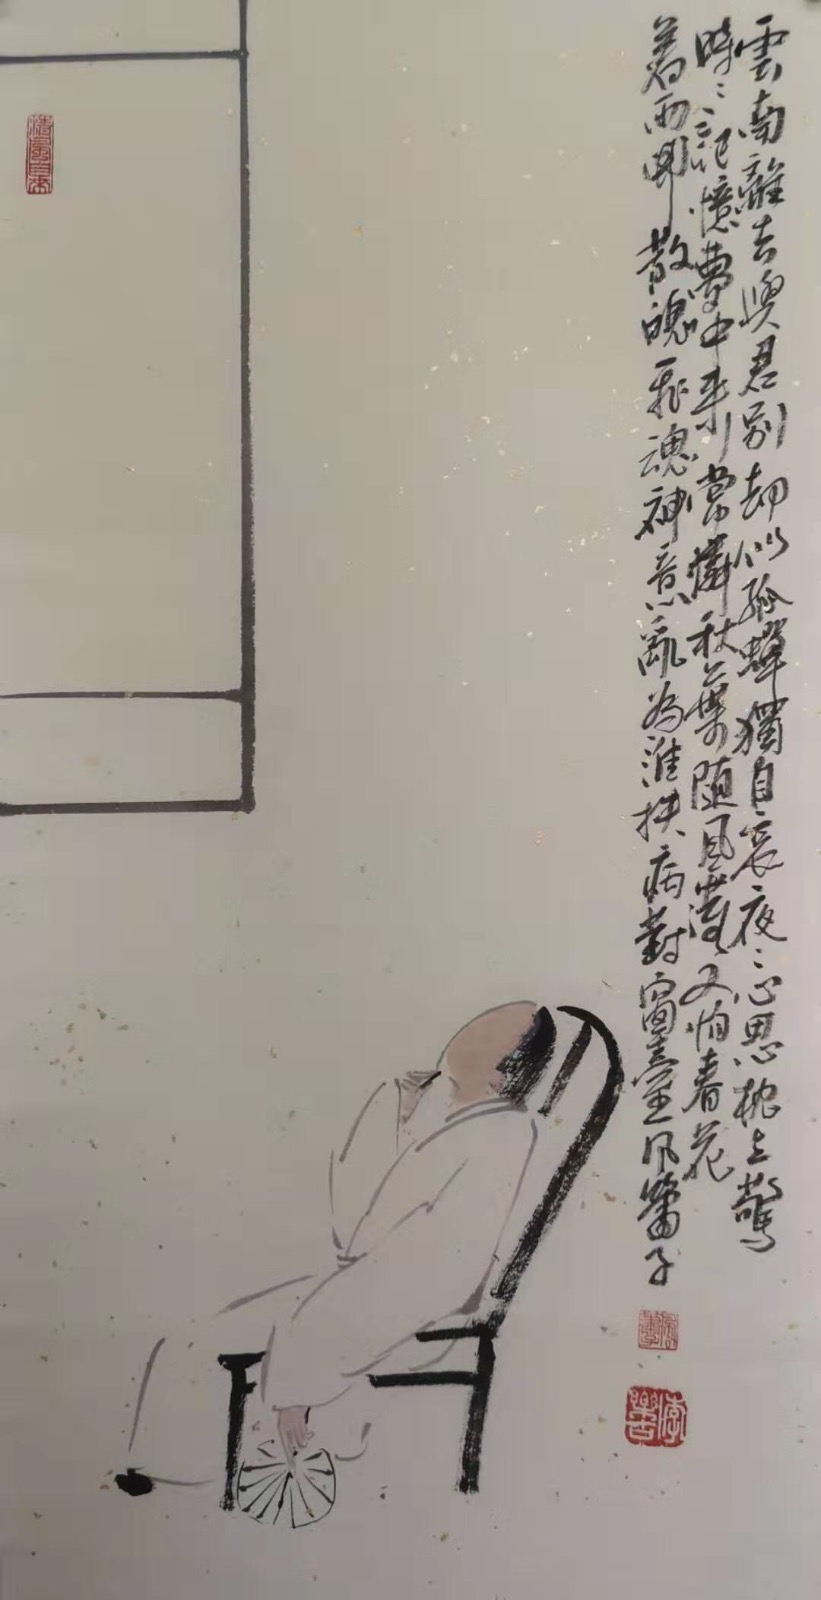 雲南離去與君別却似孤蟬獨自哀夜〻心思枕上驚
時〻記憶夢中來常憐秋葉隨風落又怕春花
着雨開散魄飛魂神意亂為誰扶病對窗臺風簫子
清風自來